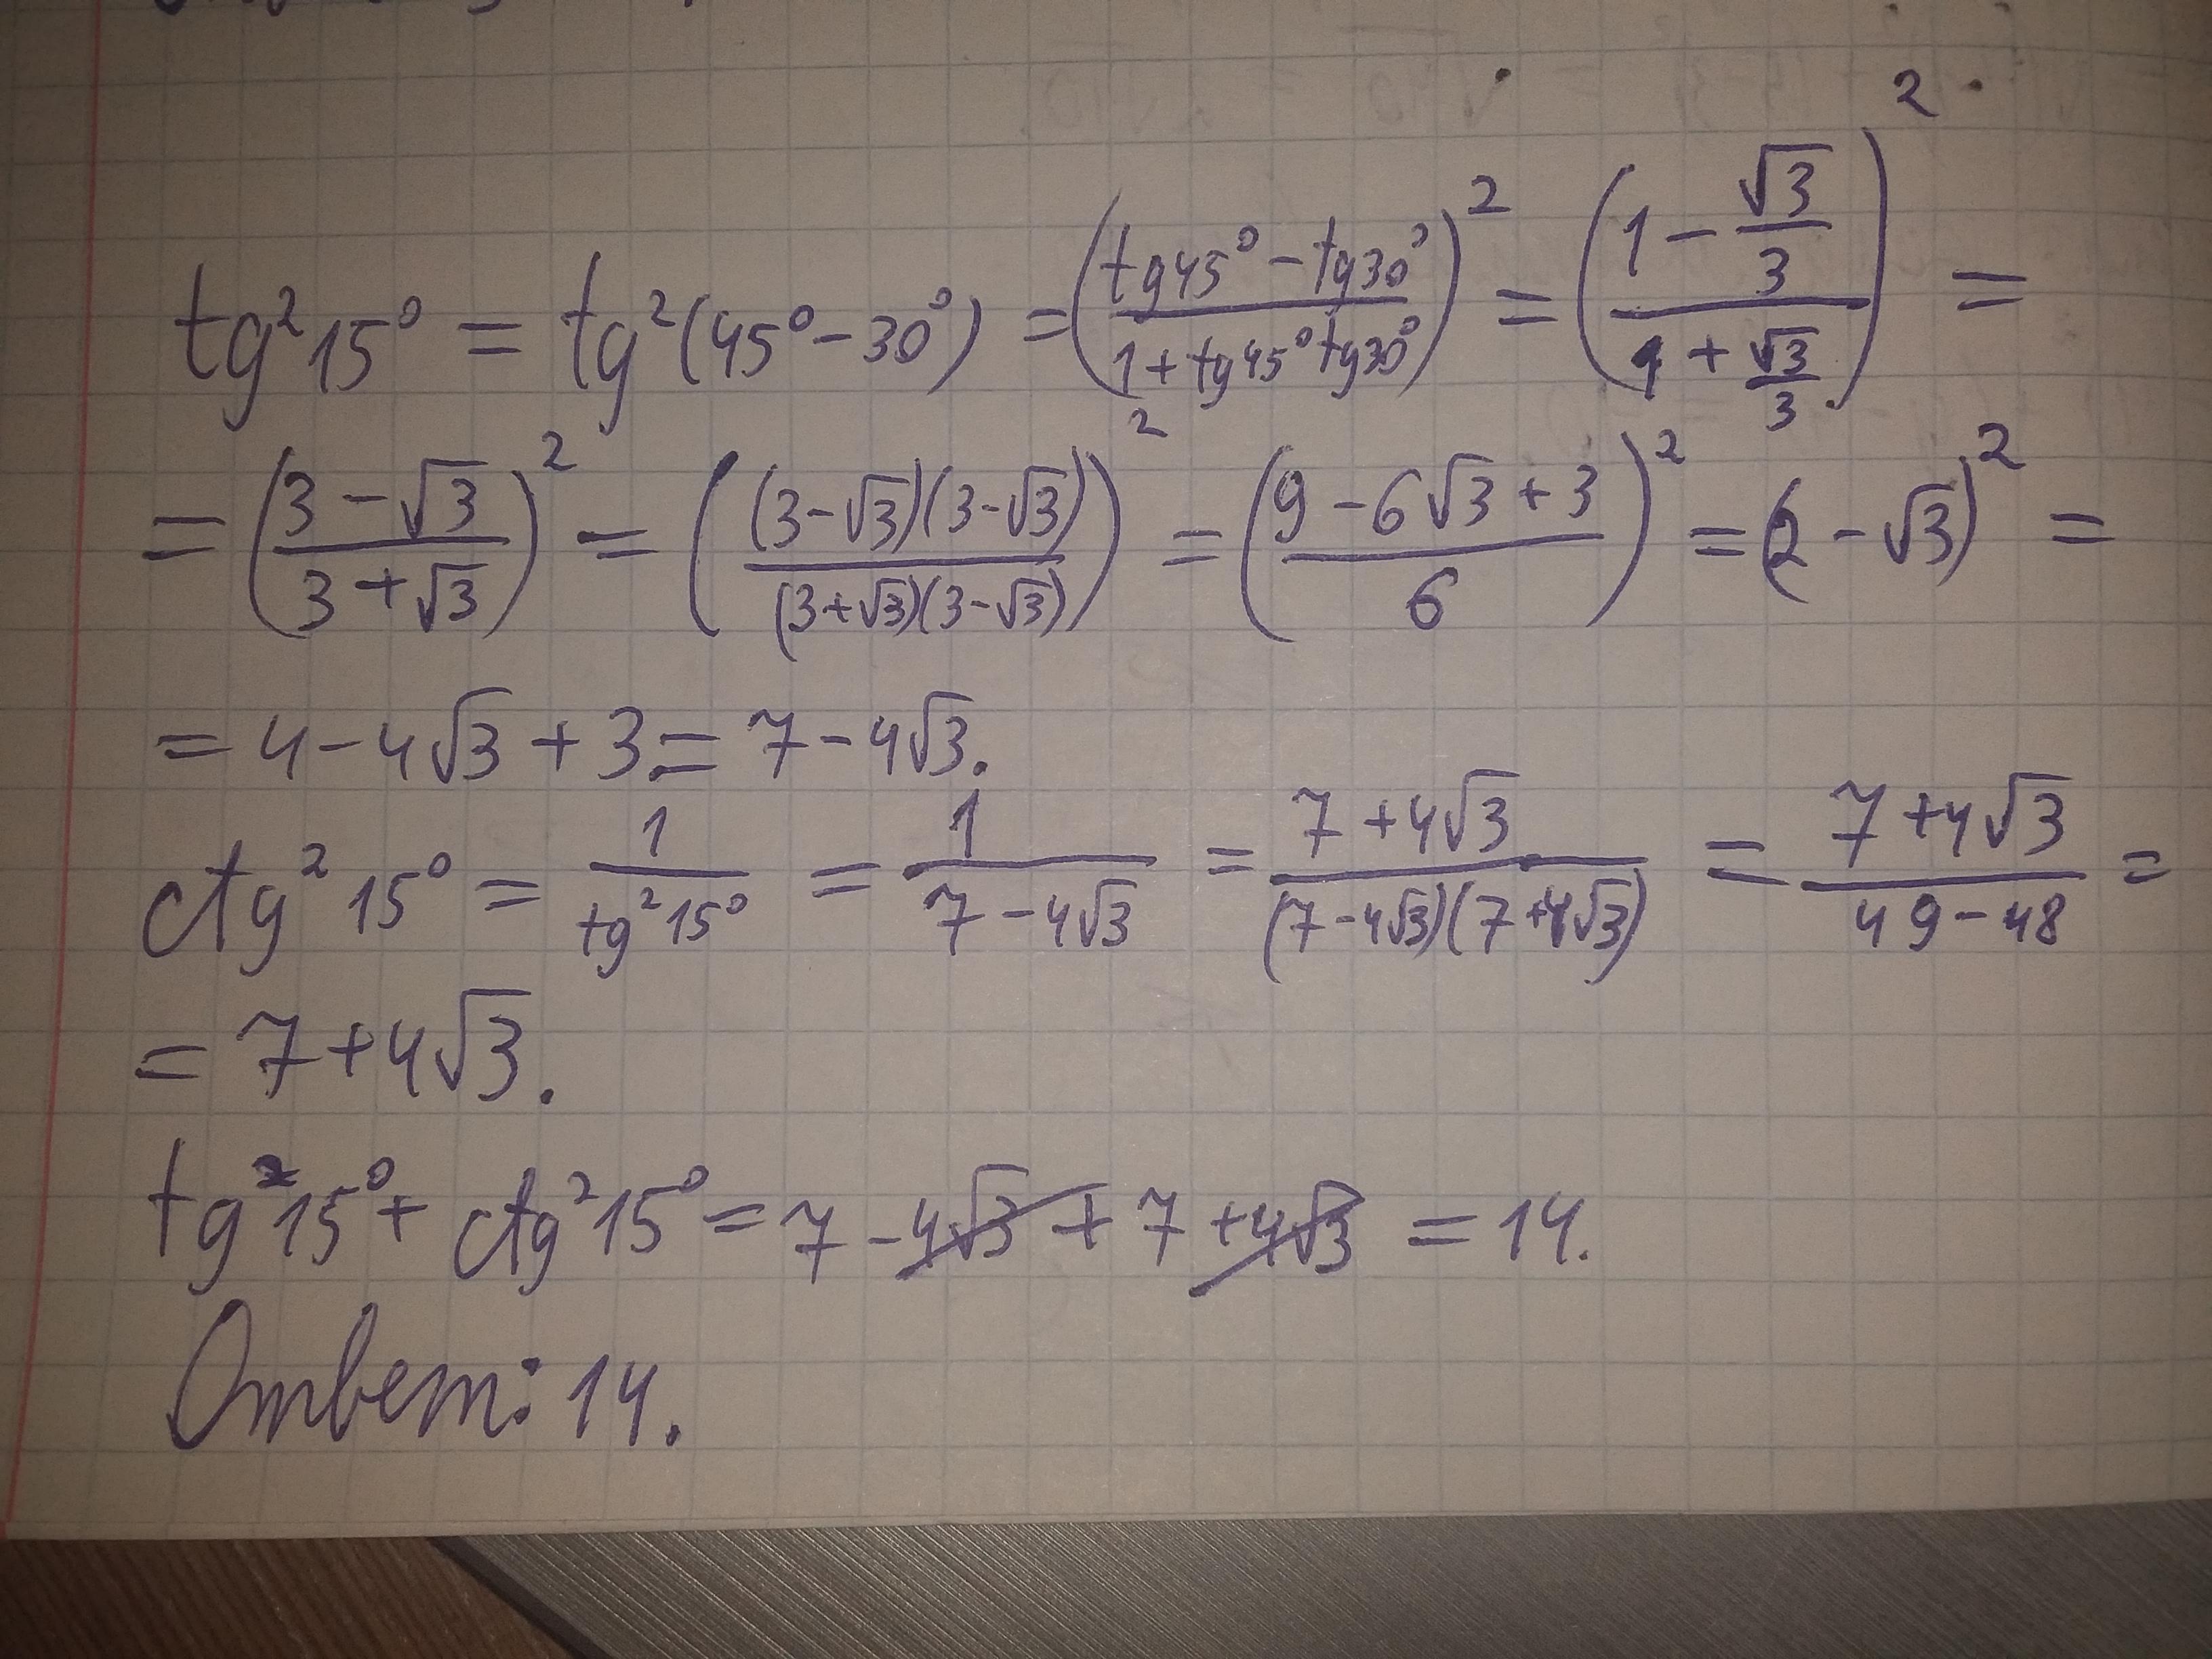 tg²15° = tg²(45° − 30°) = ((tg45° − tg30°)/(1 + tg45°tg30°))² = ((1 − √3/3)/(1 + √3/3))² =
= ((3 − √3)/(3 + √3))² = (((3 − √3)(3 − √3))/((3 + √3)(3 − √3)))² = ((9 − 6√3 + 3)/6)² = (2 − √3)² =
= 4 − 4√3 + 3 = 7 − 4√3.
ctg²15° = 1/tg²15° = 1/(7 − 4√3) = (7 + 4√3)/((7 − 4√3)(7 + 4√3)) = (7 + 4√3)/(49 − 48) =
= 7 + 4√3.
tg²15° + ctg²15° = 7 − 4√3 + 7 + 4√3 = 14.
Ответ: 14.